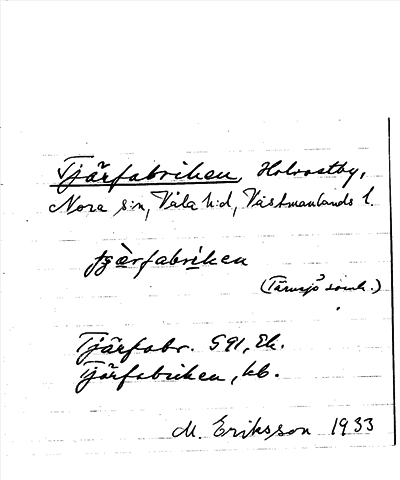 Tjärfabriken, Holvastby,
Nora s:n, Våla h:d, Västmanlands l.
tjèrfabriken
(Tärnsjö samh.)
Tjärfabr. S 91, Ek.
Tjärfabriken, kb.
M. Eriksson 1933